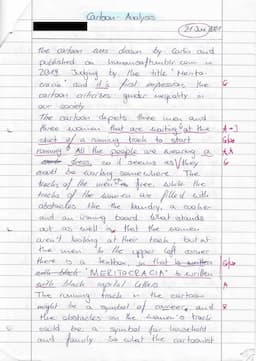 Cartoon Analysis
21 June 2021
The cartoon was drawn by Carlin and
published on humansoftumblr.com in
2019. Judging by the title "Merito-
cracia" and it's first impression, the
cartoon criticises gender inequality in
our society.
The cartoon depicts three men and
three women that are waiting at the
start of a running track to start
running. All the people are wearing a
dress, so it seems as they
could be working somewhere. The
tracks of the men are free, while the
tracks of the women are filled with
obstacles like the laundry, a cooker
and an ironing board. What stands
out as well is that the women
aren't looking at their track, but at
the men. In the upper left corner
there is a textbox, in that is written
with black "MERITOCRACIA" is written
with black capital letters.
The running track in the cartoon
might be a symbol of career and
the obstacles on the women's track
could be a symbol for household
and family. So what the cartoonist